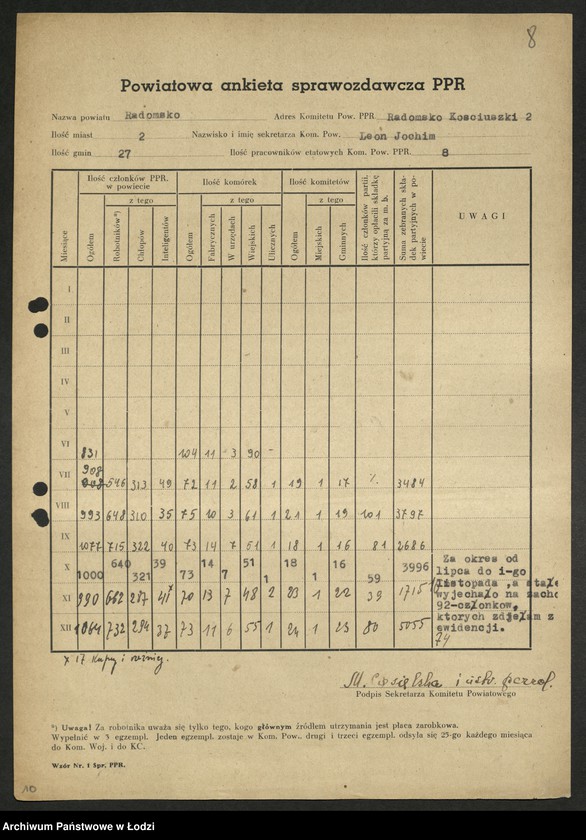 8
Powiatowa ankieta sprawozdawcza PPR
Nazwa powiatu Radomsko Adres Komitetu Pow. PPR Radomsko Kosciuszki 2
Ilość miast 2 Nazwisko i imię sekretarza Kom. Pow. Leon Jochim
Ilość gmin 27 Ilość pracowników etatowych Kom. Pow. PPR. 8
Miesiące
Ilość członków PPR. w powiecie
z tego
Ogółem
Robotników*)
Chłopów
Inteligentów
Ilość komórek
z tego
Ogółem
Fabrycznych
W urzędach
Wiejskich
Ulicznych
Ilość komitetów
z tego
Ogółem
Miejskich
Gminnych
Ilość członków partii, którzy opłacili składkę partyjną za m. b.
Suma zebranych składek partyjnych w powiecie
UWAGI
I
II
III
IV
V
VI 831 104 11 3 90 -
VII 908 546 313 49 72 11 2 58 1 19 1 17 % 3484
VIII 993 648 310 35 75 10 3 61 1 21 1 19 101 3797
IX 1077 715 322 40 73 14 7 51 1 18 1 16 81 2686
X 1000 640 321 39 73 14 7 51 1 18 1 16 59 3996
XI 990 662 287 41x 70 13 7 48 2 23 1 22 39 1715
XII 1064 732 294 37 73 11 6 55 1 24 1 23 80 5055
Za okres od
lipca do 1-go
listopada ,a stałe
wyjechało na zacho
92-członkow,
ktorych zdjełam z
ewidencji.
74
x 17 Kupcy i rzemieśl.
Podpis Sekretarza Komitetu Powiatowego
*) Uwaga! Za robotnika uważa się tylko tego, kogo głównym źródłem utrzymania jest płaca zarobkowa.
Wypełnić w 3 egzempl. Jeden egzempl. zostaje w Kom. Pow., drugi i trzeci egzempl. odsyła się 25-go każdego miesiąca
do Kom. Woj. i do KC.
Wzór Nr. 1 Spr. PPR.
10
Archiwum Państwowe w Łodzi